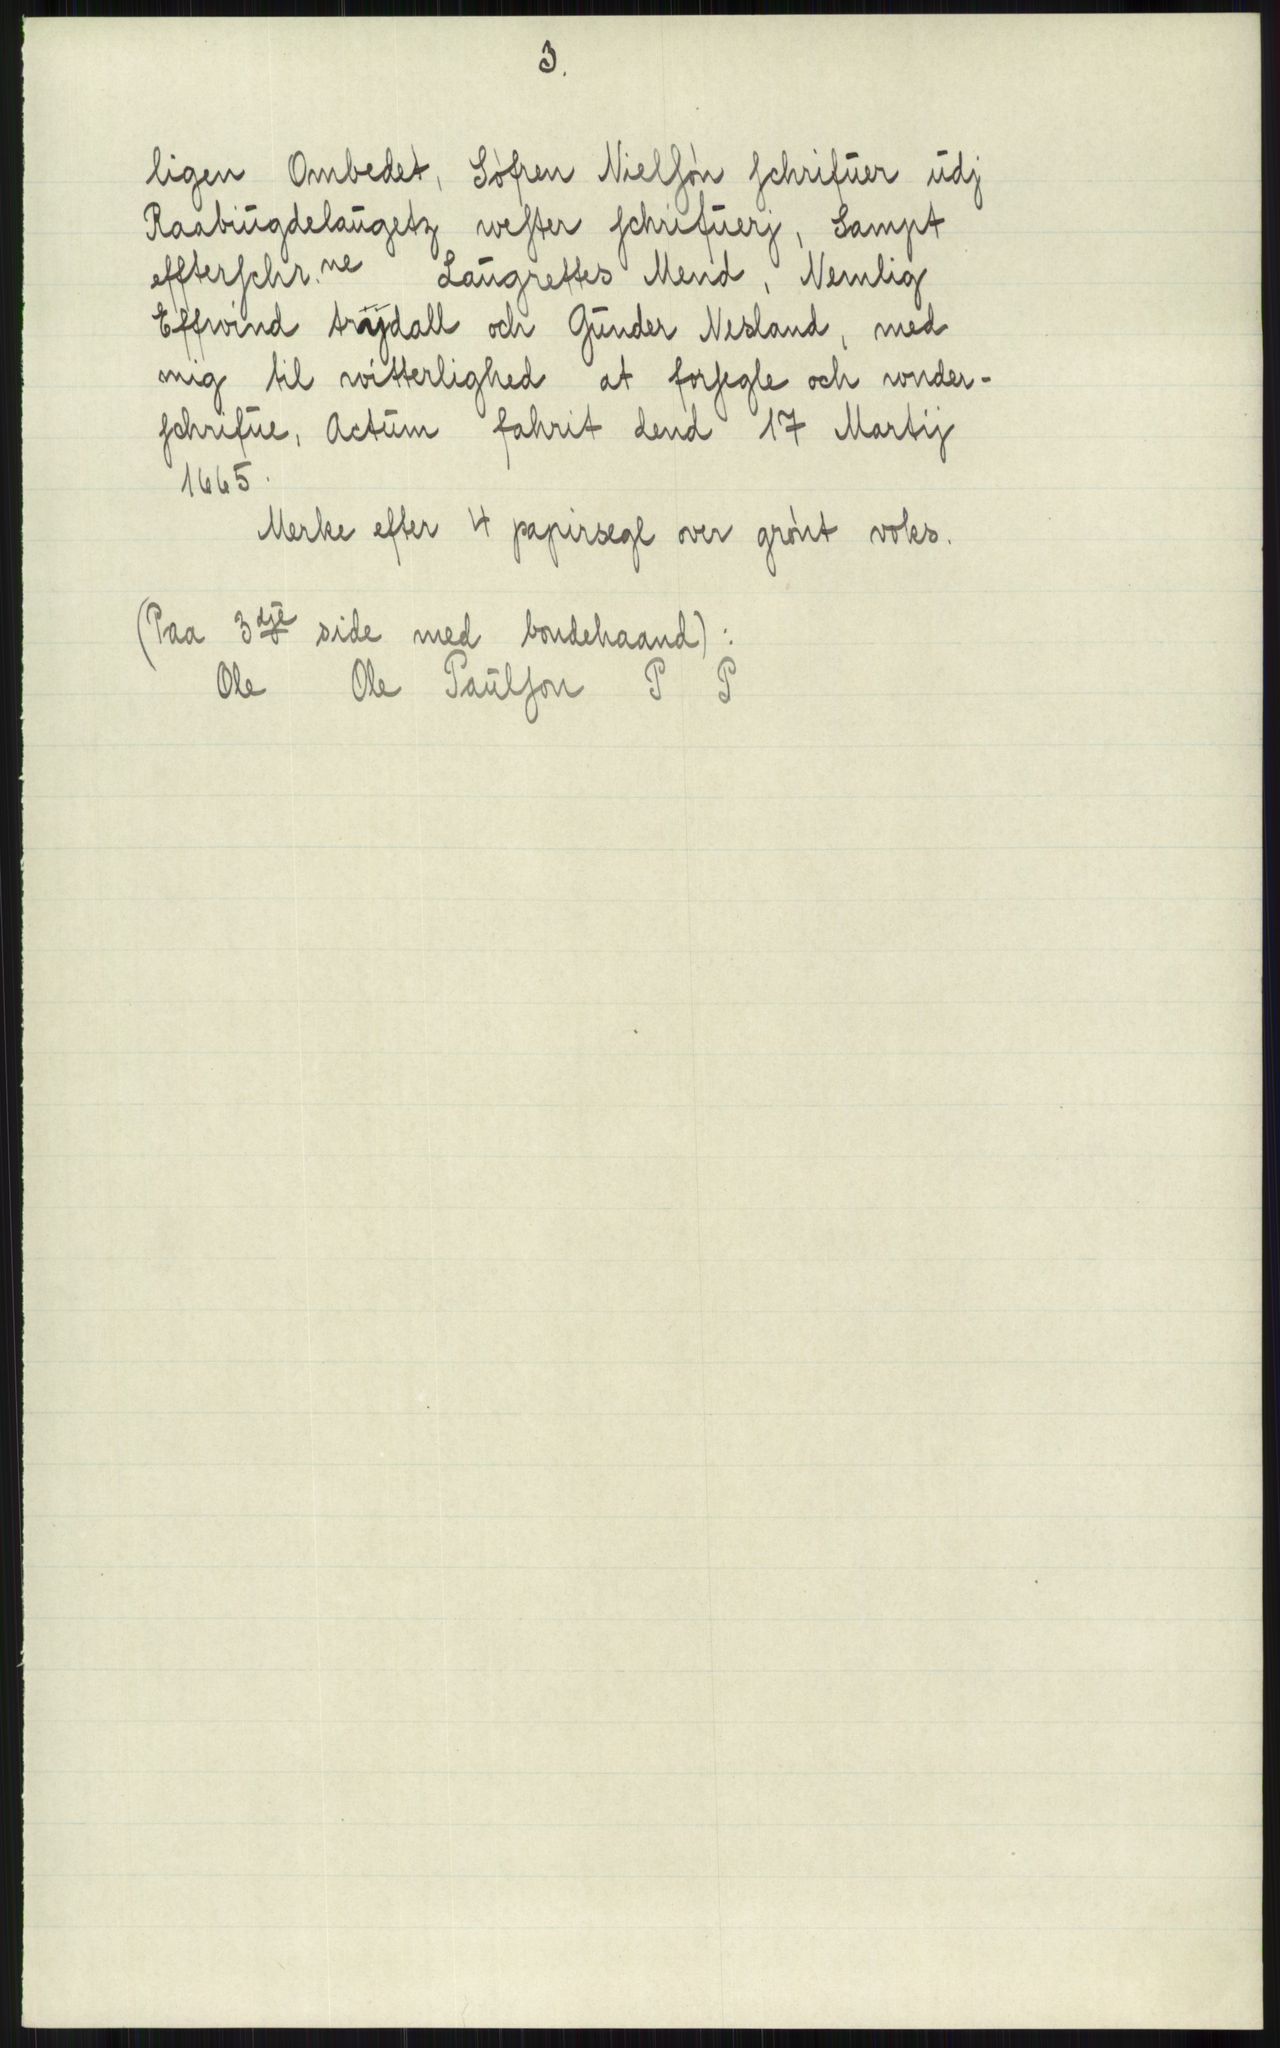 3.
ligen Ombedet, Søfren Nielsøn schrifuer udj
Raabiugdelaugetz wester schrifuerj, Sampt
effterschr.ne Laugrettes Mend, Nemlig
Effwind trÿdall och Gunder Nesland, med
mig til witterlighed at forsegle och wnder-
schrifue, Actum fahrit dend 17 Martij
1665.
Merke efter 4 papirsegl over grønt voks.
(Paa 3dje side med bondehaand):
Ole Ole Paulson P P